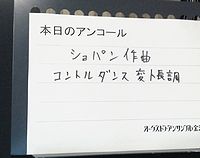 本日のアンコール
ショパン 作曲
コントルダンス 変ト長調
オーケストラ・アンサンブル・金沢